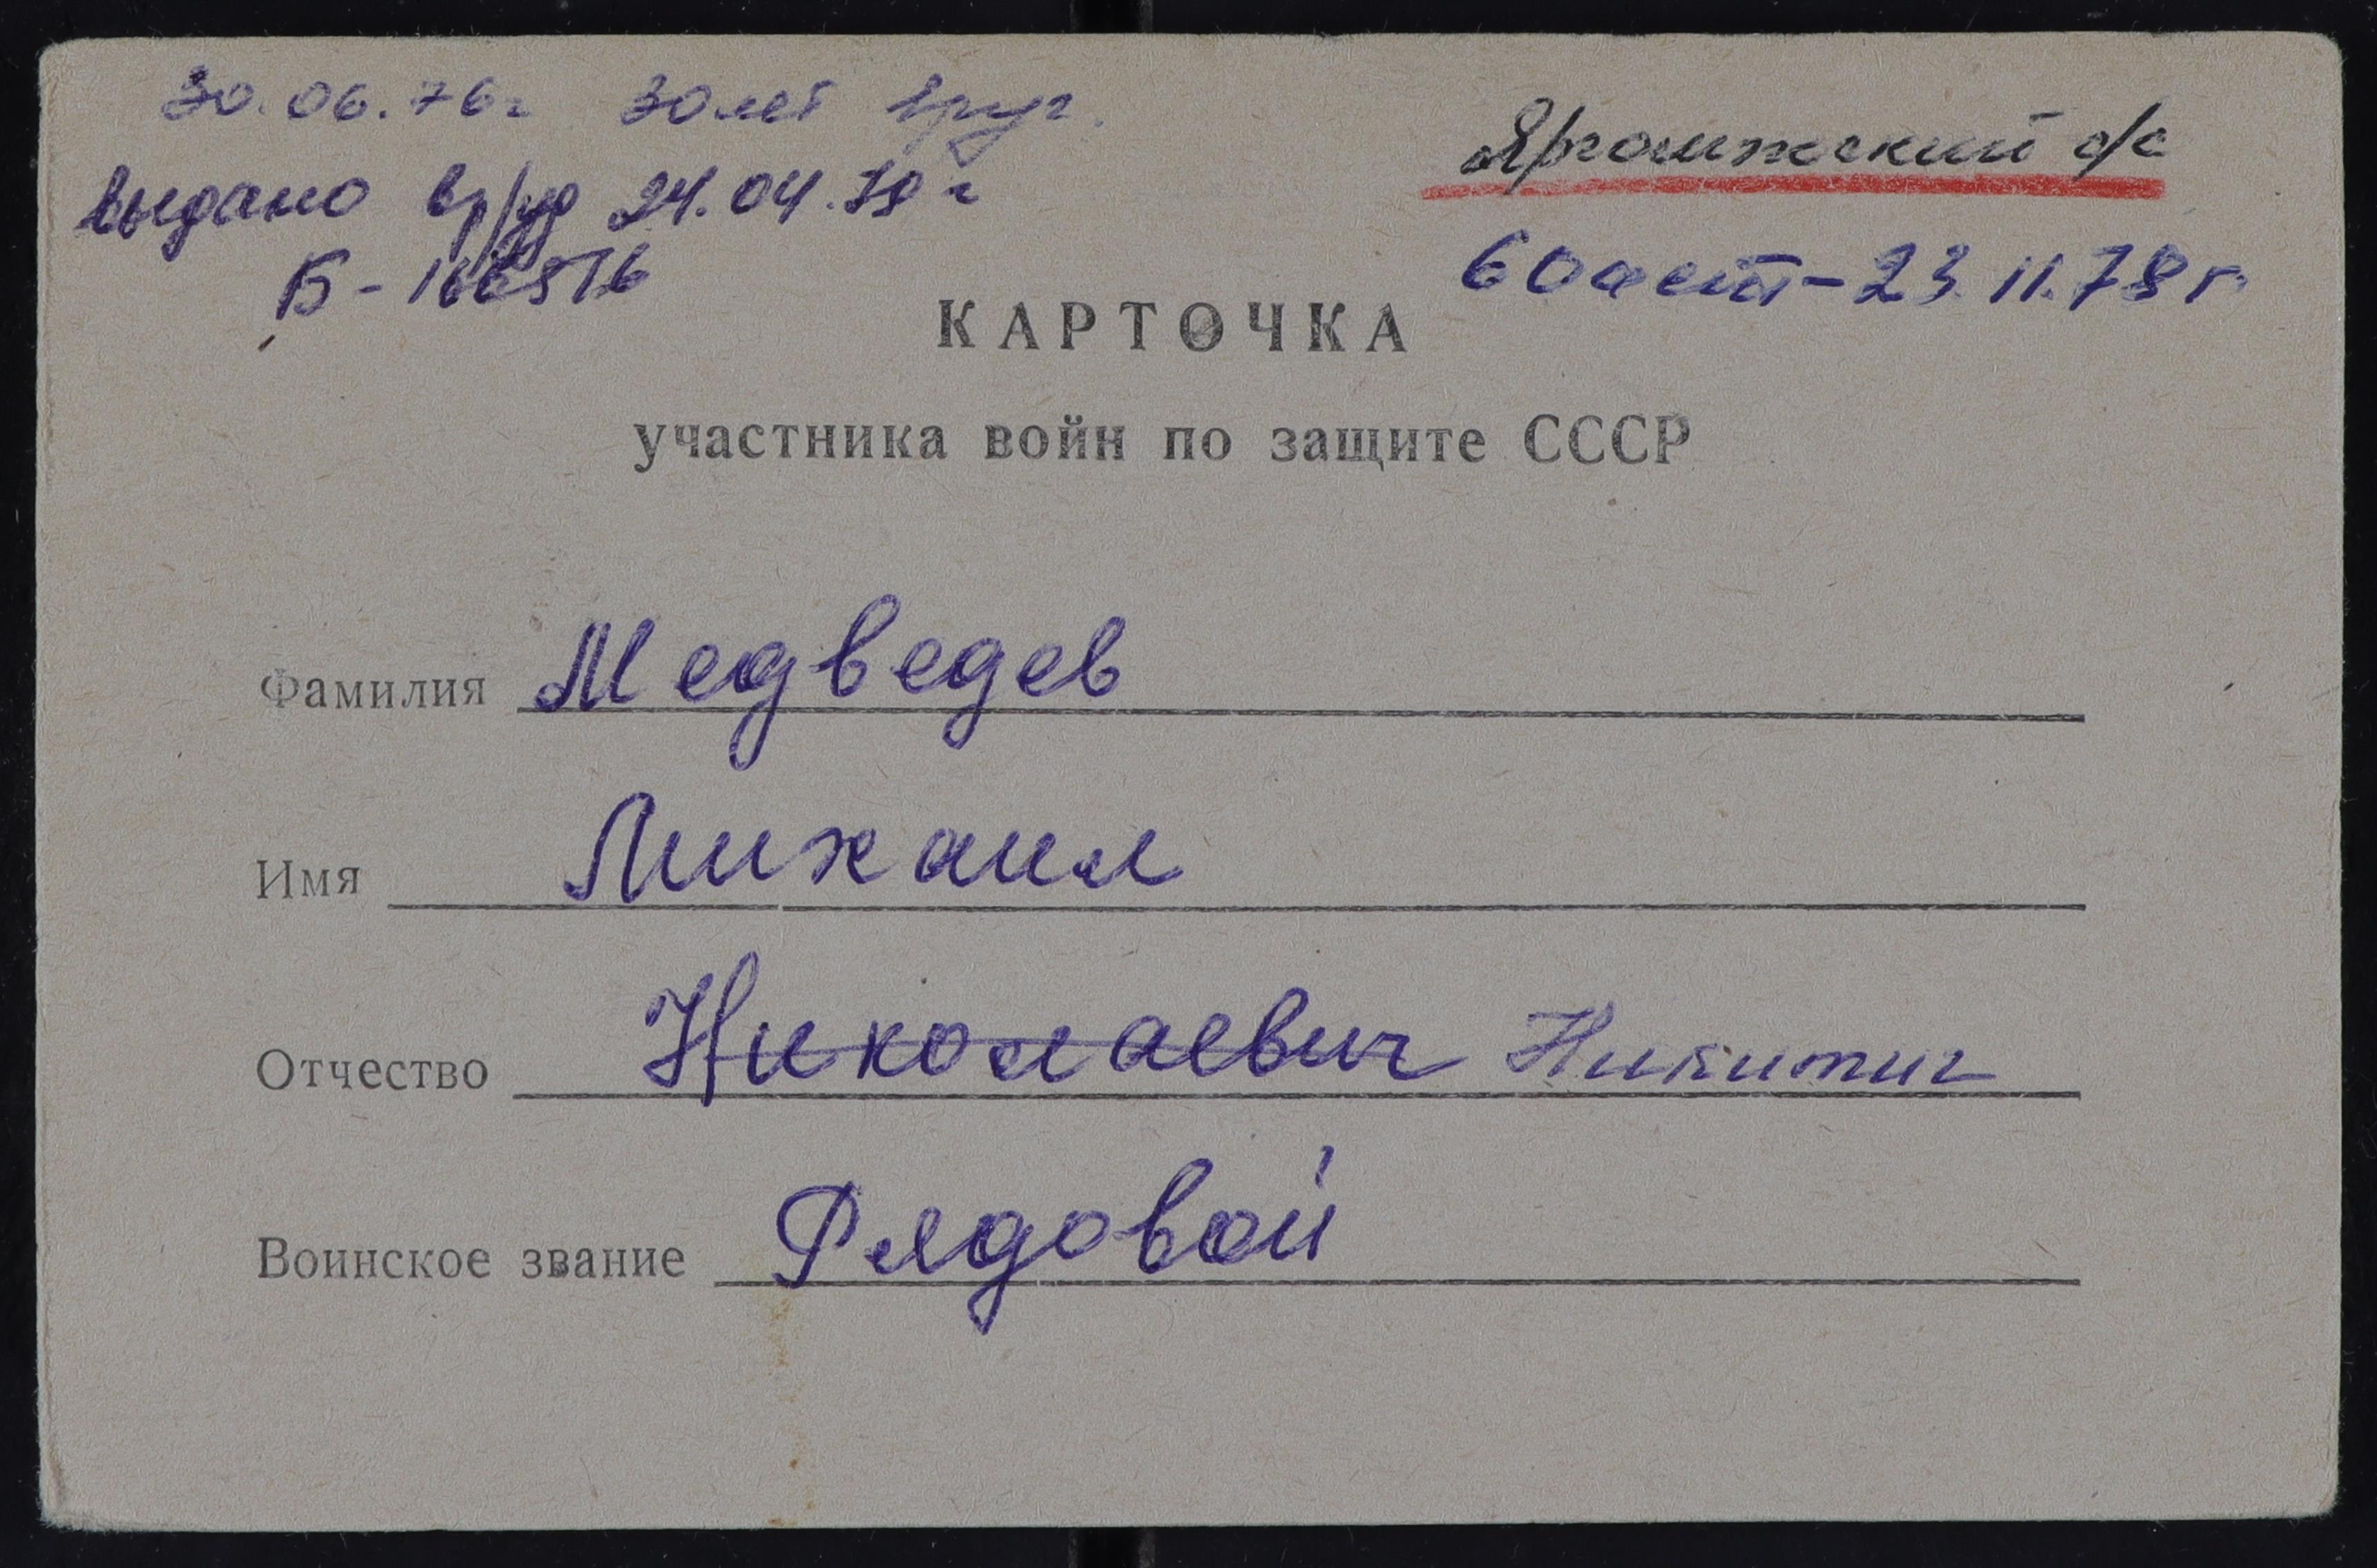 30.06.76г 30 лет вруч.
Яргомжский с/с
выдано вр/уд 24.04.79 г
60 лет - 23.11.78 г
Б-
КАРТОЧКА
участника войн по защите СССР
Фамилия Медведев
Имя Михаил
Отчество Николаевич Никитич
Воинское звание Рядовой